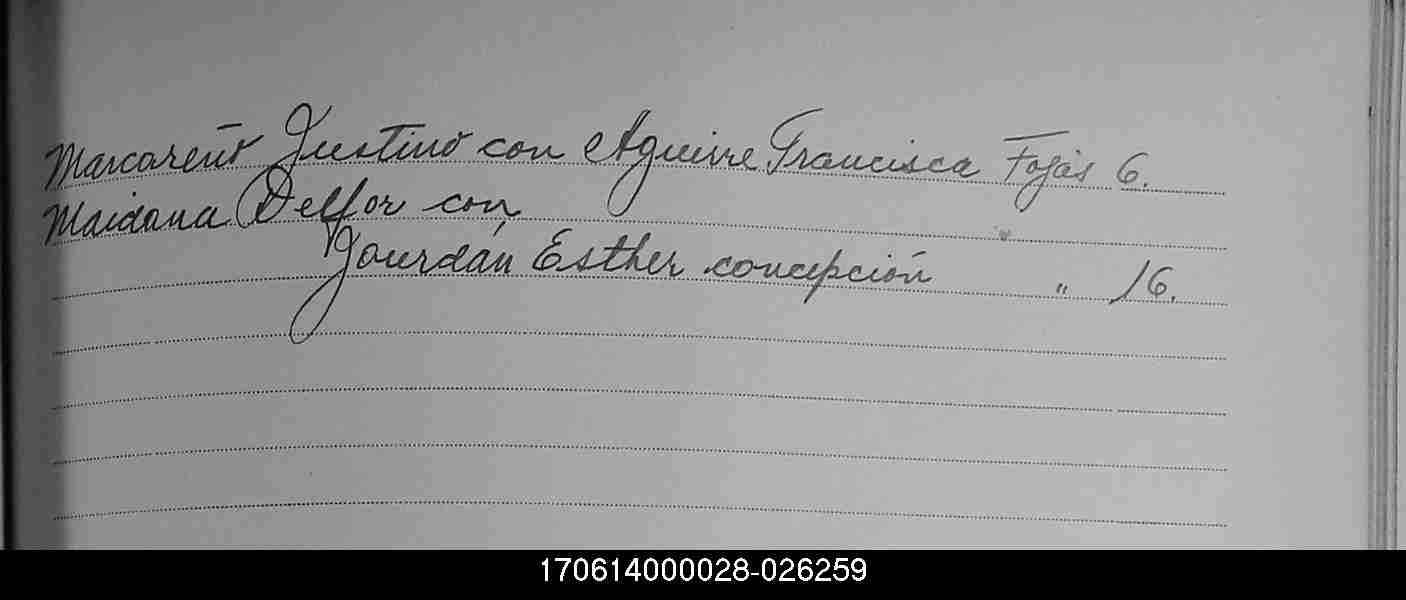 Marcareñ Justino con Aguirre Francisca Fojas 6.
Maidana Delfor con
Jourdán Esther concepción " 16.
170614000028-026259